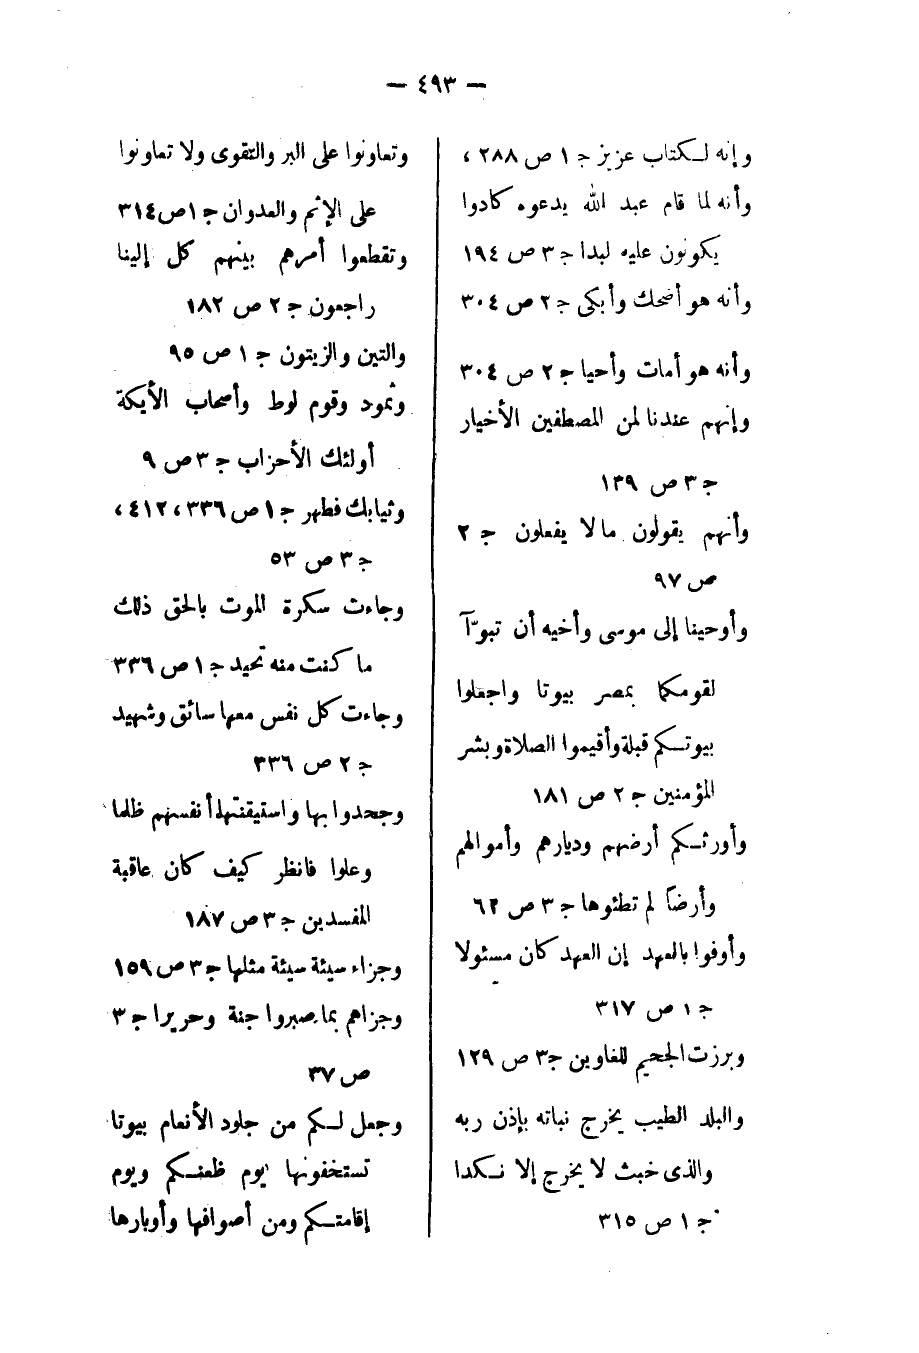 — ٤٩٣ —
وإنه لـكتاب عزيز ج ١ ص ٢٨٨ ،
وأنه لما قام عبد الله يدعوه كادوا
يكونون عليه لبدا ج ٣ ص ١٩٤
وأنه هو أضحك وأبكى ج ٢ ص ٣٠٤
وأنه هو أمات وأحيا ج ٢ ص ٣٠٤
وإنهم عندنا لمن المصطفين الأخيار
ج ٣ ص ١٣٩
وأنهم يقولون مالا يفعلون ج ٢
ص ٩٧
وأوحينا إلى موسى وأخيه أن تبوّآ
لقومكما بمصر بيوتا واجعلوا
بيوتـكم قبلة وأقيموا الصلاة وبشر
المؤمنين ج ٢ ص ١٨١
وأورثـكم أرضهم وديارهم وأموالهم
وأرضاً لم تطئوها ج ٣ ص ٦٢
وأوفوا بالعهد إن العهد كان مسئولا
ج ١ ص ٣١٧
وبرزت الجحيم للغاوين ج ٣ ص ١٢٩
والبلد الطيب يخرج نباته بإذن ربه
والذى خبث لا يخرج إلا نـكدا
ج ١ ص ٣١٥
وتعاونوا على البر والتقوى ولا تعاونوا
على الإثم والعدوان ج ١ ص ٣١٤
وتقطعوا أمرهم بينهم كل إلينا
راجعون ج ٢ ص ١٨٢
والتين والزيتون ج ١ ص ٩٥
وثمود وقوم لوط وأصحاب الأيكة
أولئك الأحزاب ج ٣ ص ٩
وثيابك فطهر ج ١ ص ٣٣٦ ، ٤١٢ ،
ج ٣ ص ٥٣
وجاءت سكرة الموت بالحق ذلك
ما كنت منه تحيد ج ١ ص ٣٣٦
وجاءت كل نفس معها سائق وشهيد
ج ٢ ص ٣٣٦
وجحدوا بها واستيقنتها أنفسهم ظلما
وعلوا فانظر كيف كان عاقبة
المفسدين ج ٣ ص ١٨٧
وجزاء سيئة سيئة مثلها ج ٣ ص ١٥٩
وجزاهم بما صبروا جنة وحريرا ج ٣
ص ٣٧
وجعل لـكم من جلود الأنعام بيوتا
تستخفونها يوم ظعنـكم ويوم
إقامتـكم ومن أصوافها وأوبارها